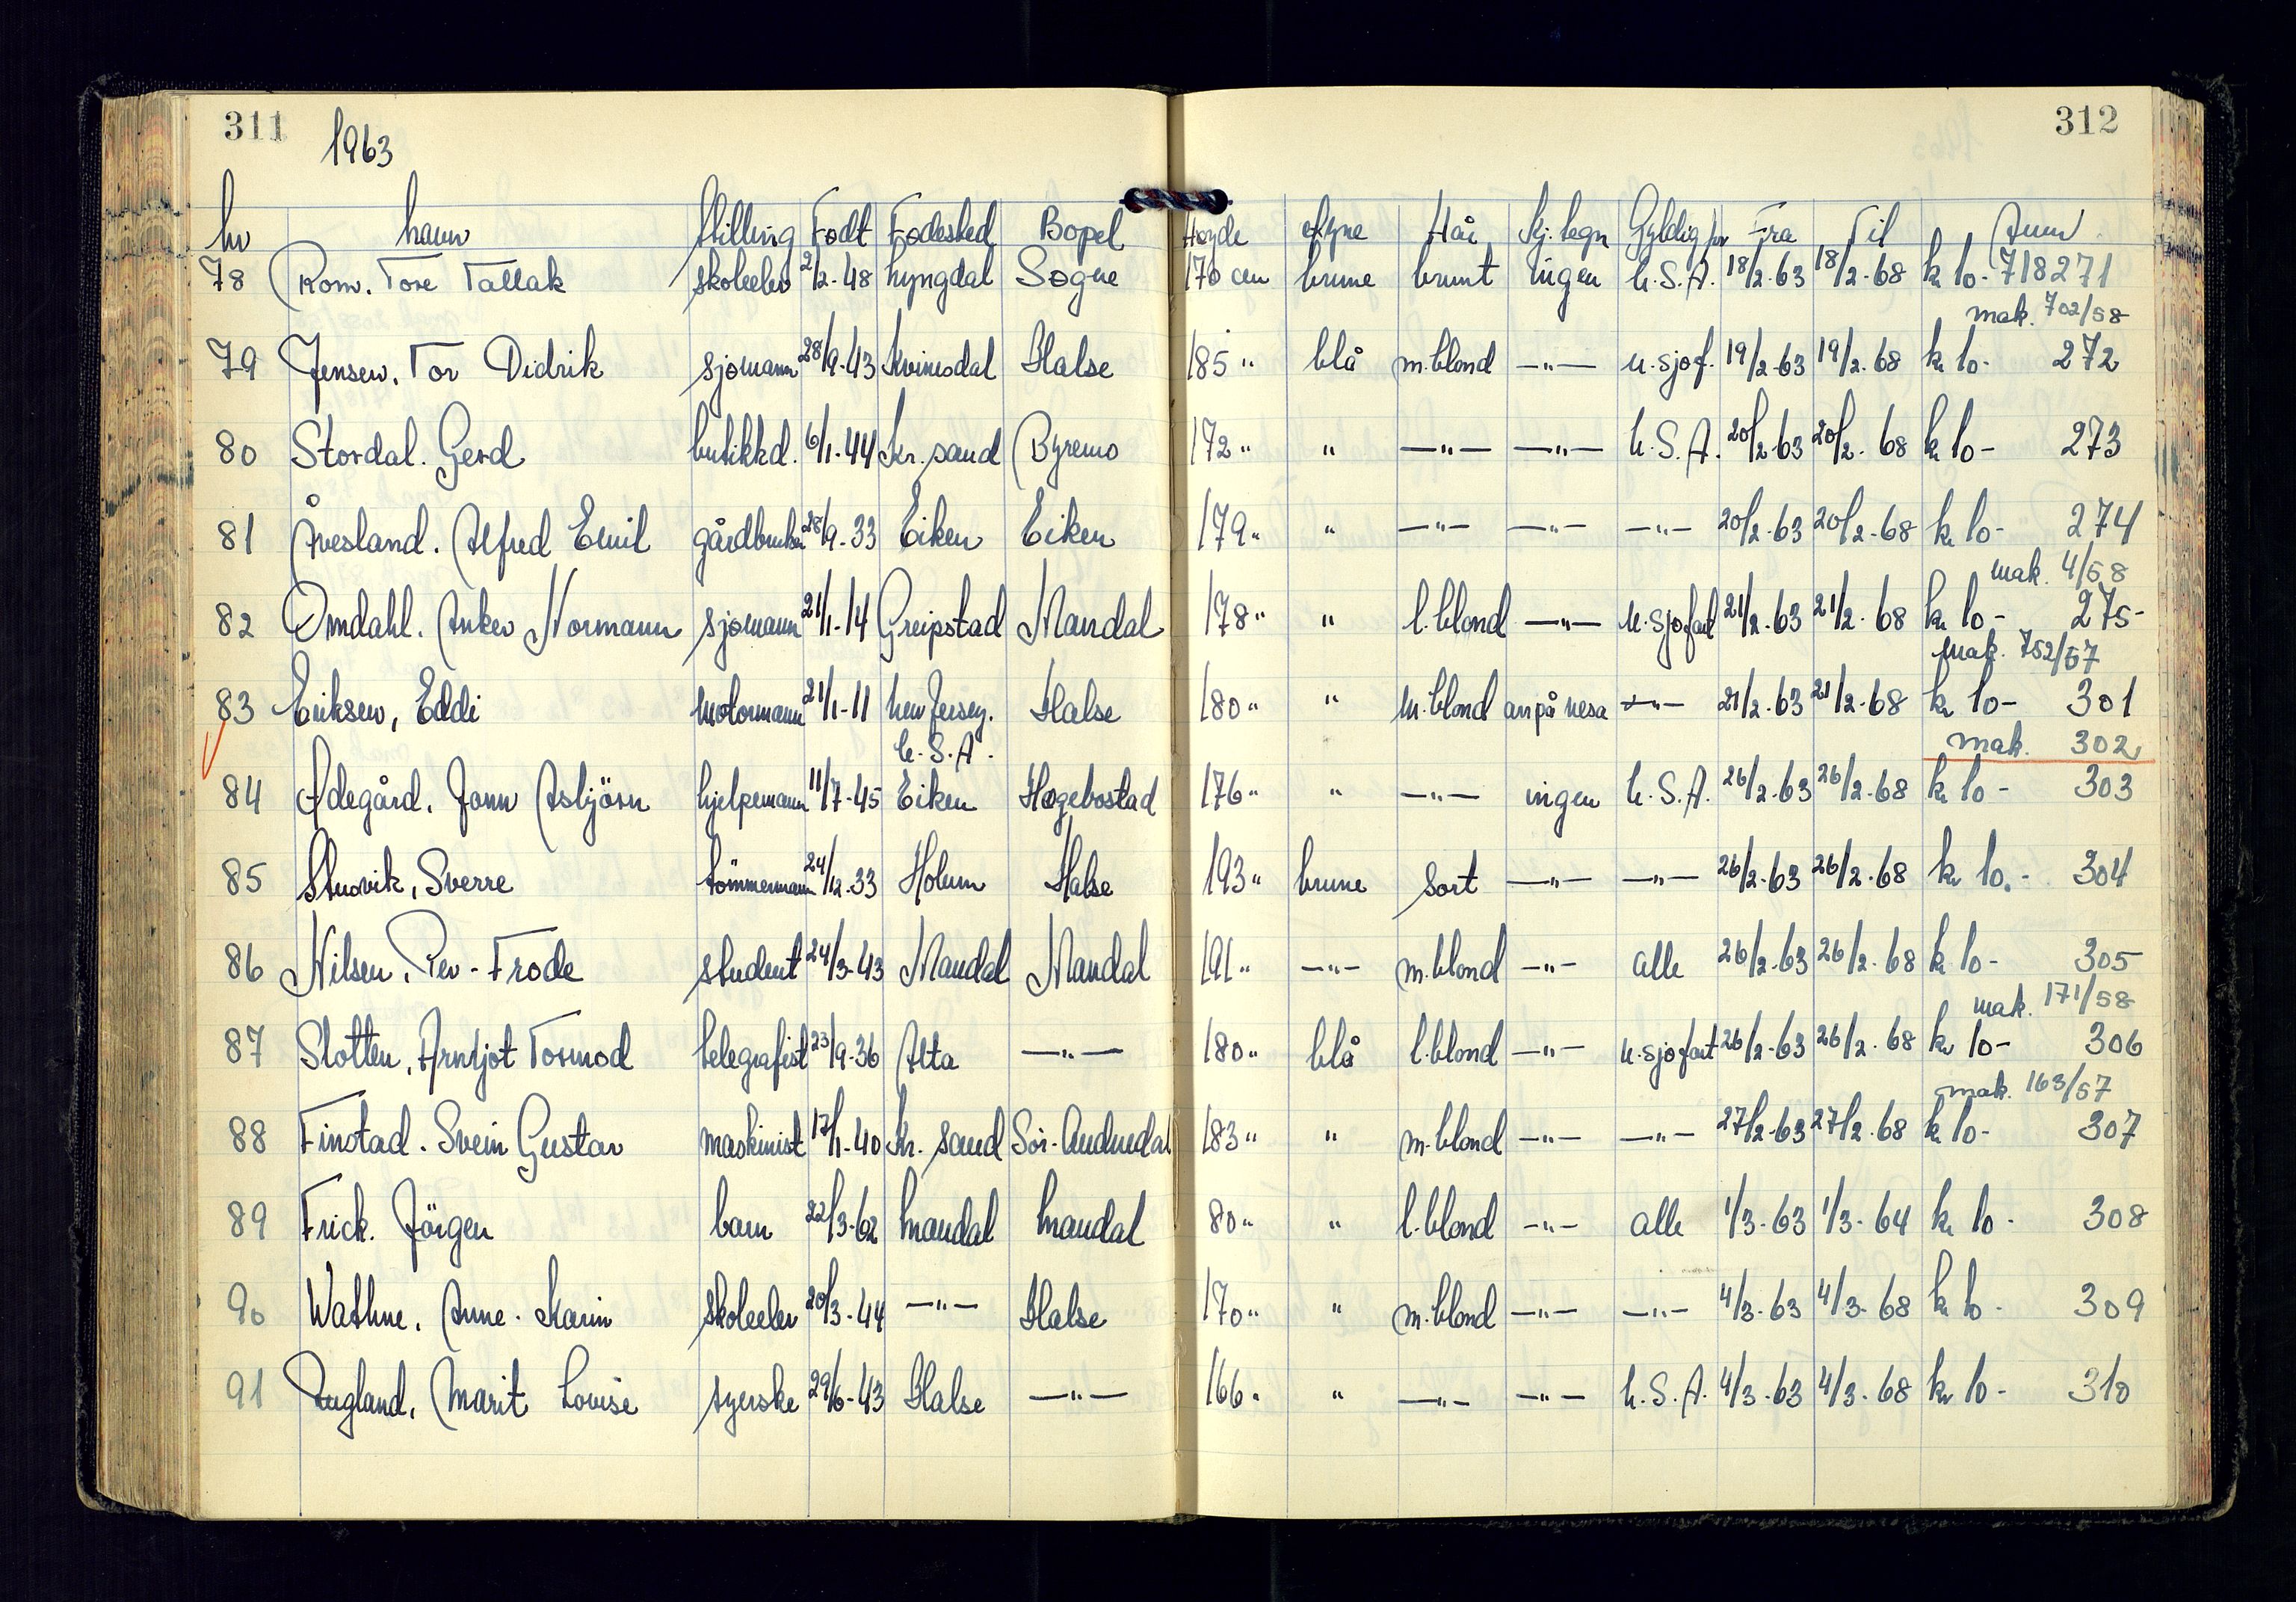 311 1963 312
Nr Navn Stilling Født Fødested Bopel Høyde Øyne Hår Kj. tegn Gyldig for Fra Til Anm
78 Rom. Tore Tallak skoleelev 2/2-48 Lyngdal Søgne 170 cm brune brunt ingen U.S.A. 18/2-63 18/2-68 kr 10- 718271
mak. 702/58
79 Jensen. Tor Didrik sjømann 28/9-43 Kvinesdal Halse 185 " blå m.blond —"— u.sjøf. 19/2-63 19/2-68 kr 10- 272
80 Stordal. Gerd butikkd. 6/1-44 Kr. sand Byremo 172 " " —"— —"— U.S.A. 20/2-63 20/2-68 kr 10- 273
81 Åvesland. Alfred Emil gårdbruker 28/9-33 Eiken Eiken 179 " " —"— —"— —"— 20/2-63 20/2-68 kr 10- 274
mak. 4/58
82 Omdahl. Anker Normann sjømann 21/1-14 Greipstad Mandal 178 " " l.blond —"— u.sjøfart 21/2-63 21/2-68 kr 10- 275-
mak. 752/57
83 Eriksen, Eddi motormann 21/1-11 New Jersey. Halse 180 " " m.blond arr på nesa —"— 21/2-63 21/2-68 kr 10- 301
U.S.A. mak. 302
84 Ødegård. Jonn Asbjörn hjelpemann 11/7-45 Eiken Hægebostad 176 " " —"— ingen U.S.A. 26/2-63 26/2-68 kr 10- 303
85 Stusvik, Sverre tömmermann 24/12-33 Holum Halse 193 " brune sort —"— —"— 26/2-63 26/2-68 kr 10.- 304
86 Nilsen, Per-Frode student 24/3-43 Mandal Mandal 191 " —"— m.blond —"— alle 26/2-63 26/2-68 kr 10- 305
mak. 171/58
87 Slotten, Arnljot Tormod telegrafist 23/9-36 Alta —"— 180 " blå l.blond —"— u.sjøfart 26/2-63 26/2-68 kr 10- 306
mak. 163/57
88 Finstad. Svein Gustav maskinist 17/1-40 Kr. sand Sör-Audnedal 183 " " m.blond —"— —"— 27/2-63 27/2-68 kr 10- 307
89 Frick. Jörgen barn 22/3-62 Mandal Mandal 80 " " l.blond —"— alle 1/3-63 1/3-64 kr 10- 308
90 Wathne. Anne-Karin skoleelev 20/3-44 —"— Halse 170 " " m.blond —"— —"— 4/3-63 4/3-68 kr 10- 309
91 Rugland, Marit Louise syerske 29/6-43 Halse —"— 166 " " —"— —"— U.S.A. 4/3-63 4/3-68 kr 10- 310